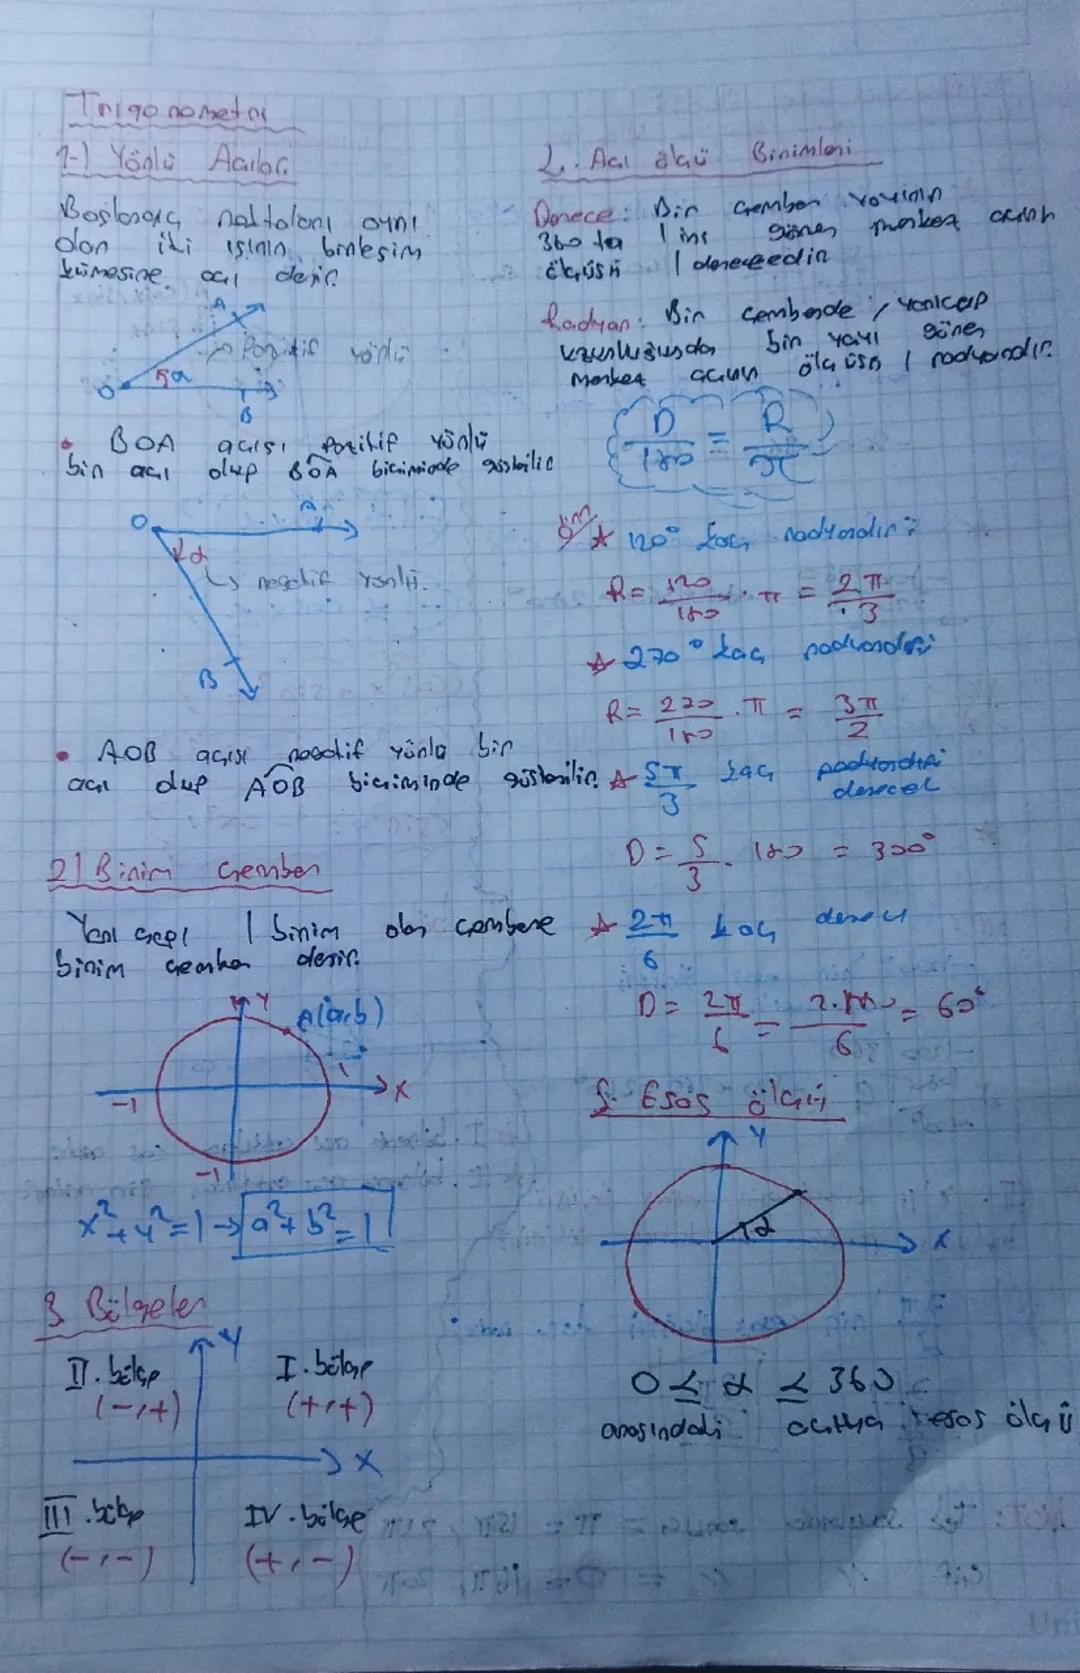 Trigonometri
1-) Yönlü Açılar.
Başlangıç noktaları aynı
olan iki ışının birleşim
kümesine açı denir.
A
Pozitif yönlü
α
O
B
• BOA açısı pozitif yönlü
bir açı olup BOA biçiminde gösterilir
O
A
α
↳ negatif yönlü.
B
• AOB açısı negatif yönlü bir
açı olup AOB biçiminde gösterilir.
2) Birim Çember
Yarıçapı 1 birim olan çembere
birim çember denir.
Y
A(a,b)
1
-1
X
-1
x²+y²=1→ a²+b²=1
3. Bölgeler
Y
II. bölge
I. bölge
(-,+)
(+,+)
X
III. bölge
IV. bölge
(-,-)
(+,-)
2. Açı ölçü Birimleri
Derece: Bir çember yayının
360 ta 1 ini gören merkez açının
ölçüsü 1 derecedir
Radyan: Bir çemberde, yarıçap
uzunluğunda bir yayı gören
merkez açının ölçüsü 1 radyandır.
D/180 = R/π
Örn
★ 120° kaç radyandır?
R= 120/180 . π = 2π/3
★ 270° kaç radyandır?
R= 270/180 . π = 3π/2
★ 5π/3 kaç
derece
D = 5/3 . 180 = 300°
★ 2π/6 kaç derece
D = 2π/6 = 2.180/6 = 60°
Esas ölçü
Y
α
X
0 ≤ α ≤ 360
arasındaki açıya esas ölçü